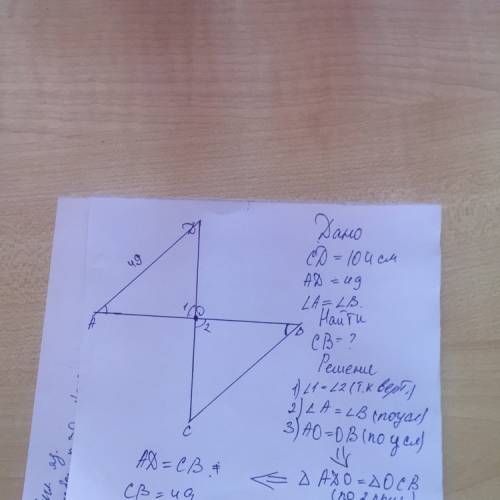 D
49
A
1
2
B
C
Дано
CD = 104 см
AD = 49
∠A = ∠B.
Найти
CB = ?
Решение
1) ∠1 = ∠2 (т.к верт.)
2) ∠A = ∠B (по усл)
3) AO = OB (по усл)
⇓
AD = CB
⇐ Δ ADO = Δ OCB
CB = 49